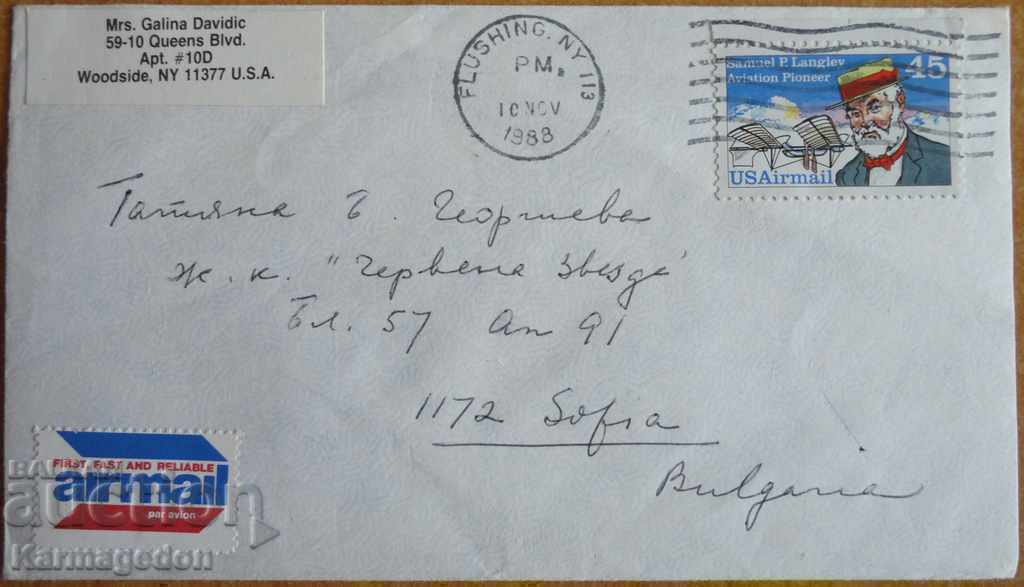 Mrs. Galina Davidic
59-10 Queens Blvd.
Apt. #10D
Woodside, NY 11377 U.S.A.
FLUSHING, NY 113
PM
10 NOV
1988
Samuel P. Langley
Aviation Pioneer
45
USAirmail
Татяна Б. Георгиева
ж.к. "Червена Звезда"
Бл. 57 Ап 91
1172 Sofia
Bulgaria
FIRST, FAST AND RELIABLE
airmail
par avion
auction
Karmagedon